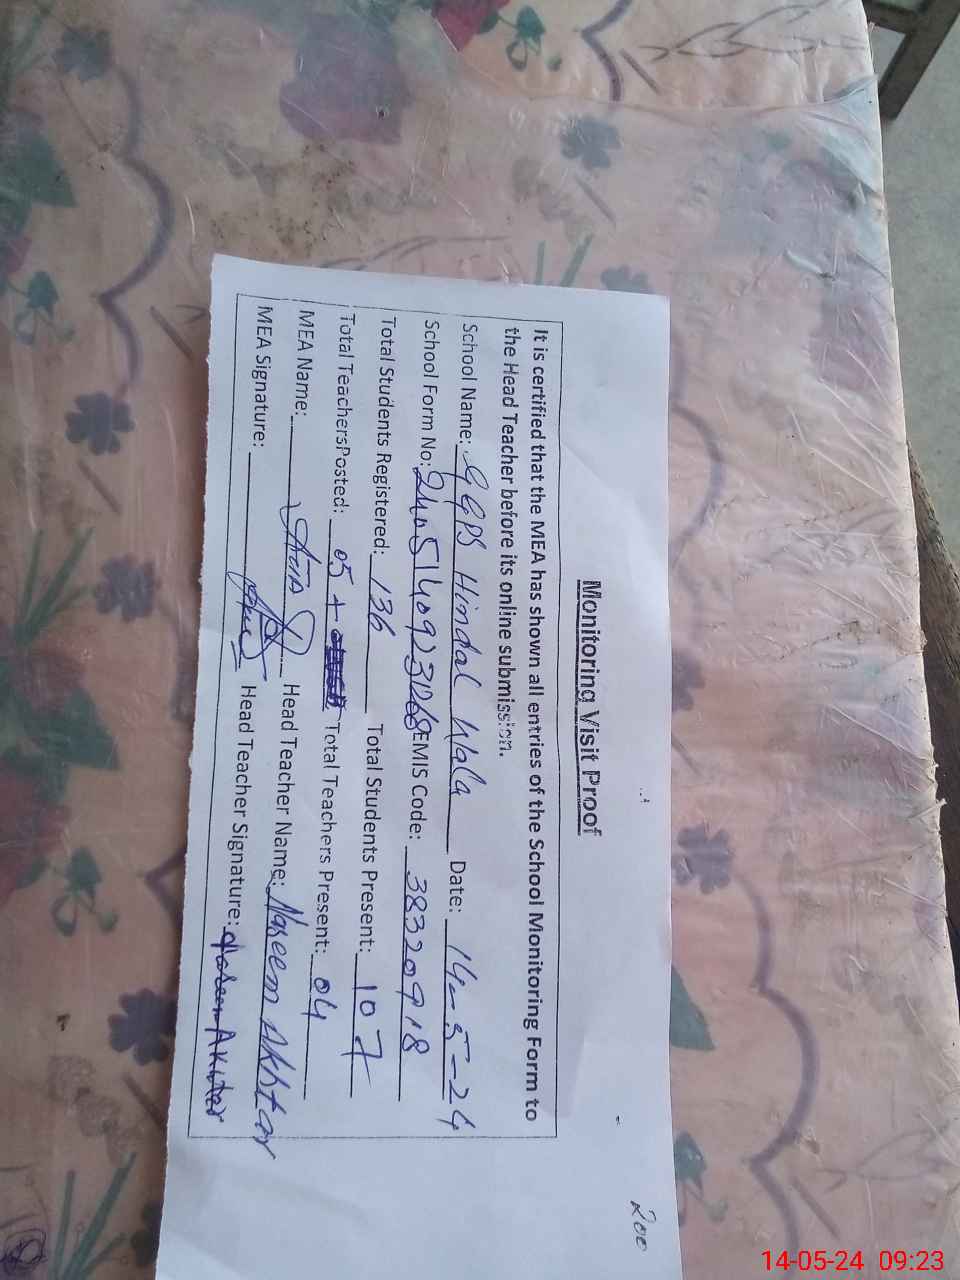 200
Monitoring Visit Proof
It is certified that the MEA has shown all entries of the School Monitoring Form to
the Head Teacher before its online submission.
School Name: GGPS Hindal Wala Date: 14-5-24
School Form No: EMIS Code: 38320918
Total Students Registered: 136 Total Students Present: 107
Total TeachersPosted: 05 + Total Teachers Present: 04
MEA Name: Head Teacher Name: Naseem Akhtar
MEA Signature: Head Teacher Signature: Akhter
14-05-24 09:23